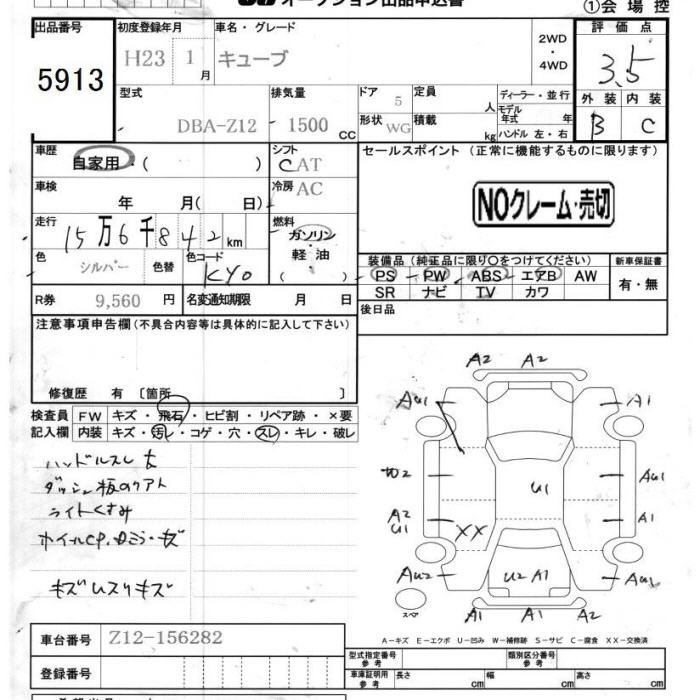 オークション出品申込書
①会場控
出品番号 初度登録年月 車名・グレード 評価点
5913 H23 1月 キューブ 2WD・4WD 3.5
型式 排気量 ドア 5 定員 人 ディーラー・並行 外装 内装
DBA-Z12 1500 CC 形状 WG 積載 kg モデル年式 年 B C
ハンドル 左・右
車歴 自家用・( ) シフト CAT セールスポイント (正常に機能するものに限ります)
車検 年 月( 日) 冷房 AC NOクレーム・売切
走行 15万6千842km 燃料 ガソリン・軽油 ( )
色 シルバー 色替 色コード KY0 装備品(純正品に限り○をつけてください) 新車保証書
PS PW ABS エアB AW 有・無
SR ナビ TV カワ
R券 9,560円 名変通知期限 月 日 後日品
注意事項申告欄(不具合内容等は具体的に記入して下さい)
修復歴 有 〔箇所 〕
検査員 FW キズ・飛石・ヒビ割・リペア跡・×要
記入欄 内装 キズ・汚レ・コゲ・穴・スレ・キレ・破レ
ハンドルスレ 大
ライトくすみ
キズ
A2 A2
AU1 A1
W2 U1 AU1
A2 U1 A1
XX
AU2 U2 A1 AU1
スペア A1 A1 A2
A-キズ E-エクボ U-凹み W-補修跡 S-サビ C-腐食 XX-交換済
車台番号 Z12-156282
型式指定番号 参考 類別区分番号 参考
登録番号 車庫証明用 参考 長さ cm 幅 cm 高さ cm